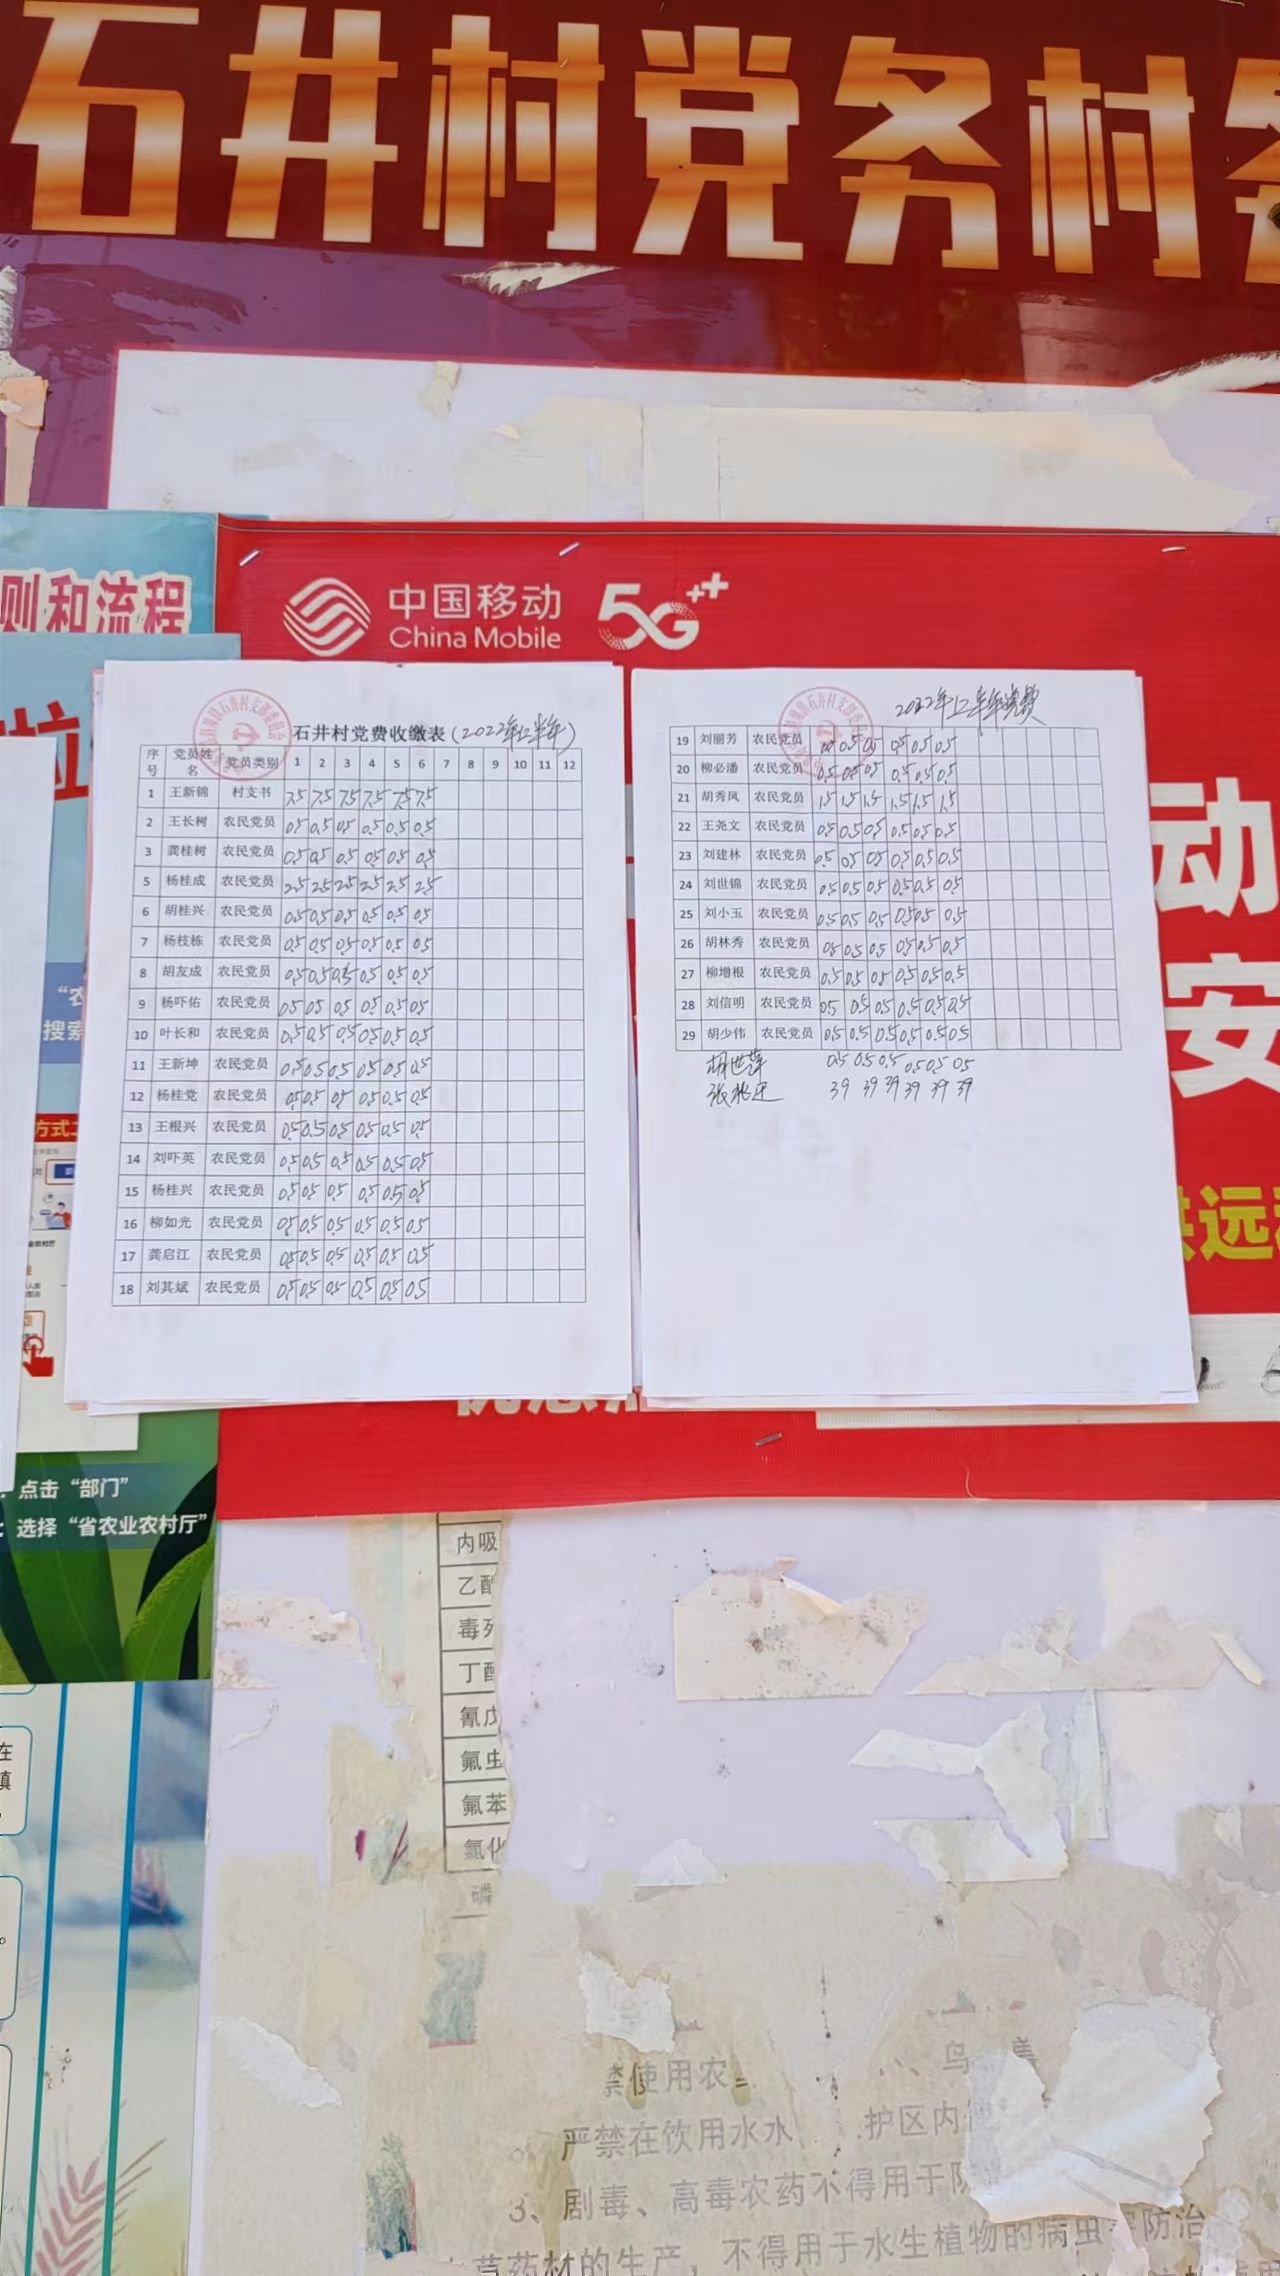 石井村党务村务
则和流程
中国移动 5G++
China Mobile
石井村党费收缴表(2022年上半年)
序号 党员姓名 党员类别 1 2 3 4 5 6 7 8 9 10 11 12
1 王新锦 村支书 7.5 7.5 7.5 7.5 7.5 7.5
2 王长树 农民党员 0.5 0.5 0.5 0.5 0.5 0.5
3 龚桂树 农民党员 0.5 0.5 0.5 0.5 0.5 0.5
5 杨桂成 农民党员 2.5 2.5 2.5 2.5 2.5 2.5
6 胡桂兴 农民党员 0.5 0.5 0.5 0.5 0.5 0.5
7 杨枝栋 农民党员 0.5 0.5 0.5 0.5 0.5 0.5
8 胡友成 农民党员 0.5 0.5 0.5 0.5 0.5 0.5
9 杨吓佑 农民党员 0.5 0.5 0.5 0.5 0.5 0.5
10 叶长和 农民党员 0.5 0.5 0.5 0.5 0.5 0.5
11 王新坤 农民党员 0.5 0.5 0.5 0.5 0.5 0.5
12 杨桂党 农民党员 0.5 0.5 0.5 0.5 0.5 0.5
13 王根兴 农民党员 0.5 0.5 0.5 0.5 0.5 0.5
14 刘吓英 农民党员 0.5 0.5 0.5 0.5 0.5 0.5
15 杨桂兴 农民党员 0.5 0.5 0.5 0.5 0.5 0.5
16 柳如光 农民党员 0.5 0.5 0.5 0.5 0.5 0.5
17 龚启江 农民党员 0.5 0.5 0.5 0.5 0.5 0.5
18 刘其斌 农民党员 0.5 0.5 0.5 0.5 0.5 0.5
2022年上半年党费
19 刘丽芳 农民党员 0.5 0.5 0.5 0.5 0.5 0.5
20 柳必潘 农民党员 0.5 0.5 0.5 0.5 0.5 0.5
21 胡秀凤 农民党员 1.5 1.5 1.5 1.5 1.5 1.5
22 王尧文 农民党员 0.5 0.5 0.5 0.5 0.5 0.5
23 刘建林 农民党员 0.5 0.5 0.5 0.5 0.5 0.5
24 刘世锦 农民党员 0.5 0.5 0.5 0.5 0.5 0.5
25 刘小玉 农民党员 0.5 0.5 0.5 0.5 0.5 0.5
26 胡林秀 农民党员 0.5 0.5 0.5 0.5 0.5 0.5
27 柳增根 农民党员 0.5 0.5 0.5 0.5 0.5 0.5
28 刘信明 农民党员 0.5 0.5 0.5 0.5 0.5 0.5
29 胡少伟 农民党员 0.5 0.5 0.5 0.5 0.5 0.5
胡世萍 0.5 0.5 0.5 0.5 0.5 0.5
39 39 39 39 39 39
动
安
远
搜索
方式二
点击“部门”
选择“省农业农村厅”
内吸
乙酰
毒死
丁酯
氰戊
氟虫
氟苯
氯化
磷
禁使用农
严禁在饮用水水 护区内使
3、剧毒、高毒农药不得用于防
草药材的生产，不得用于水生植物的病虫害防治